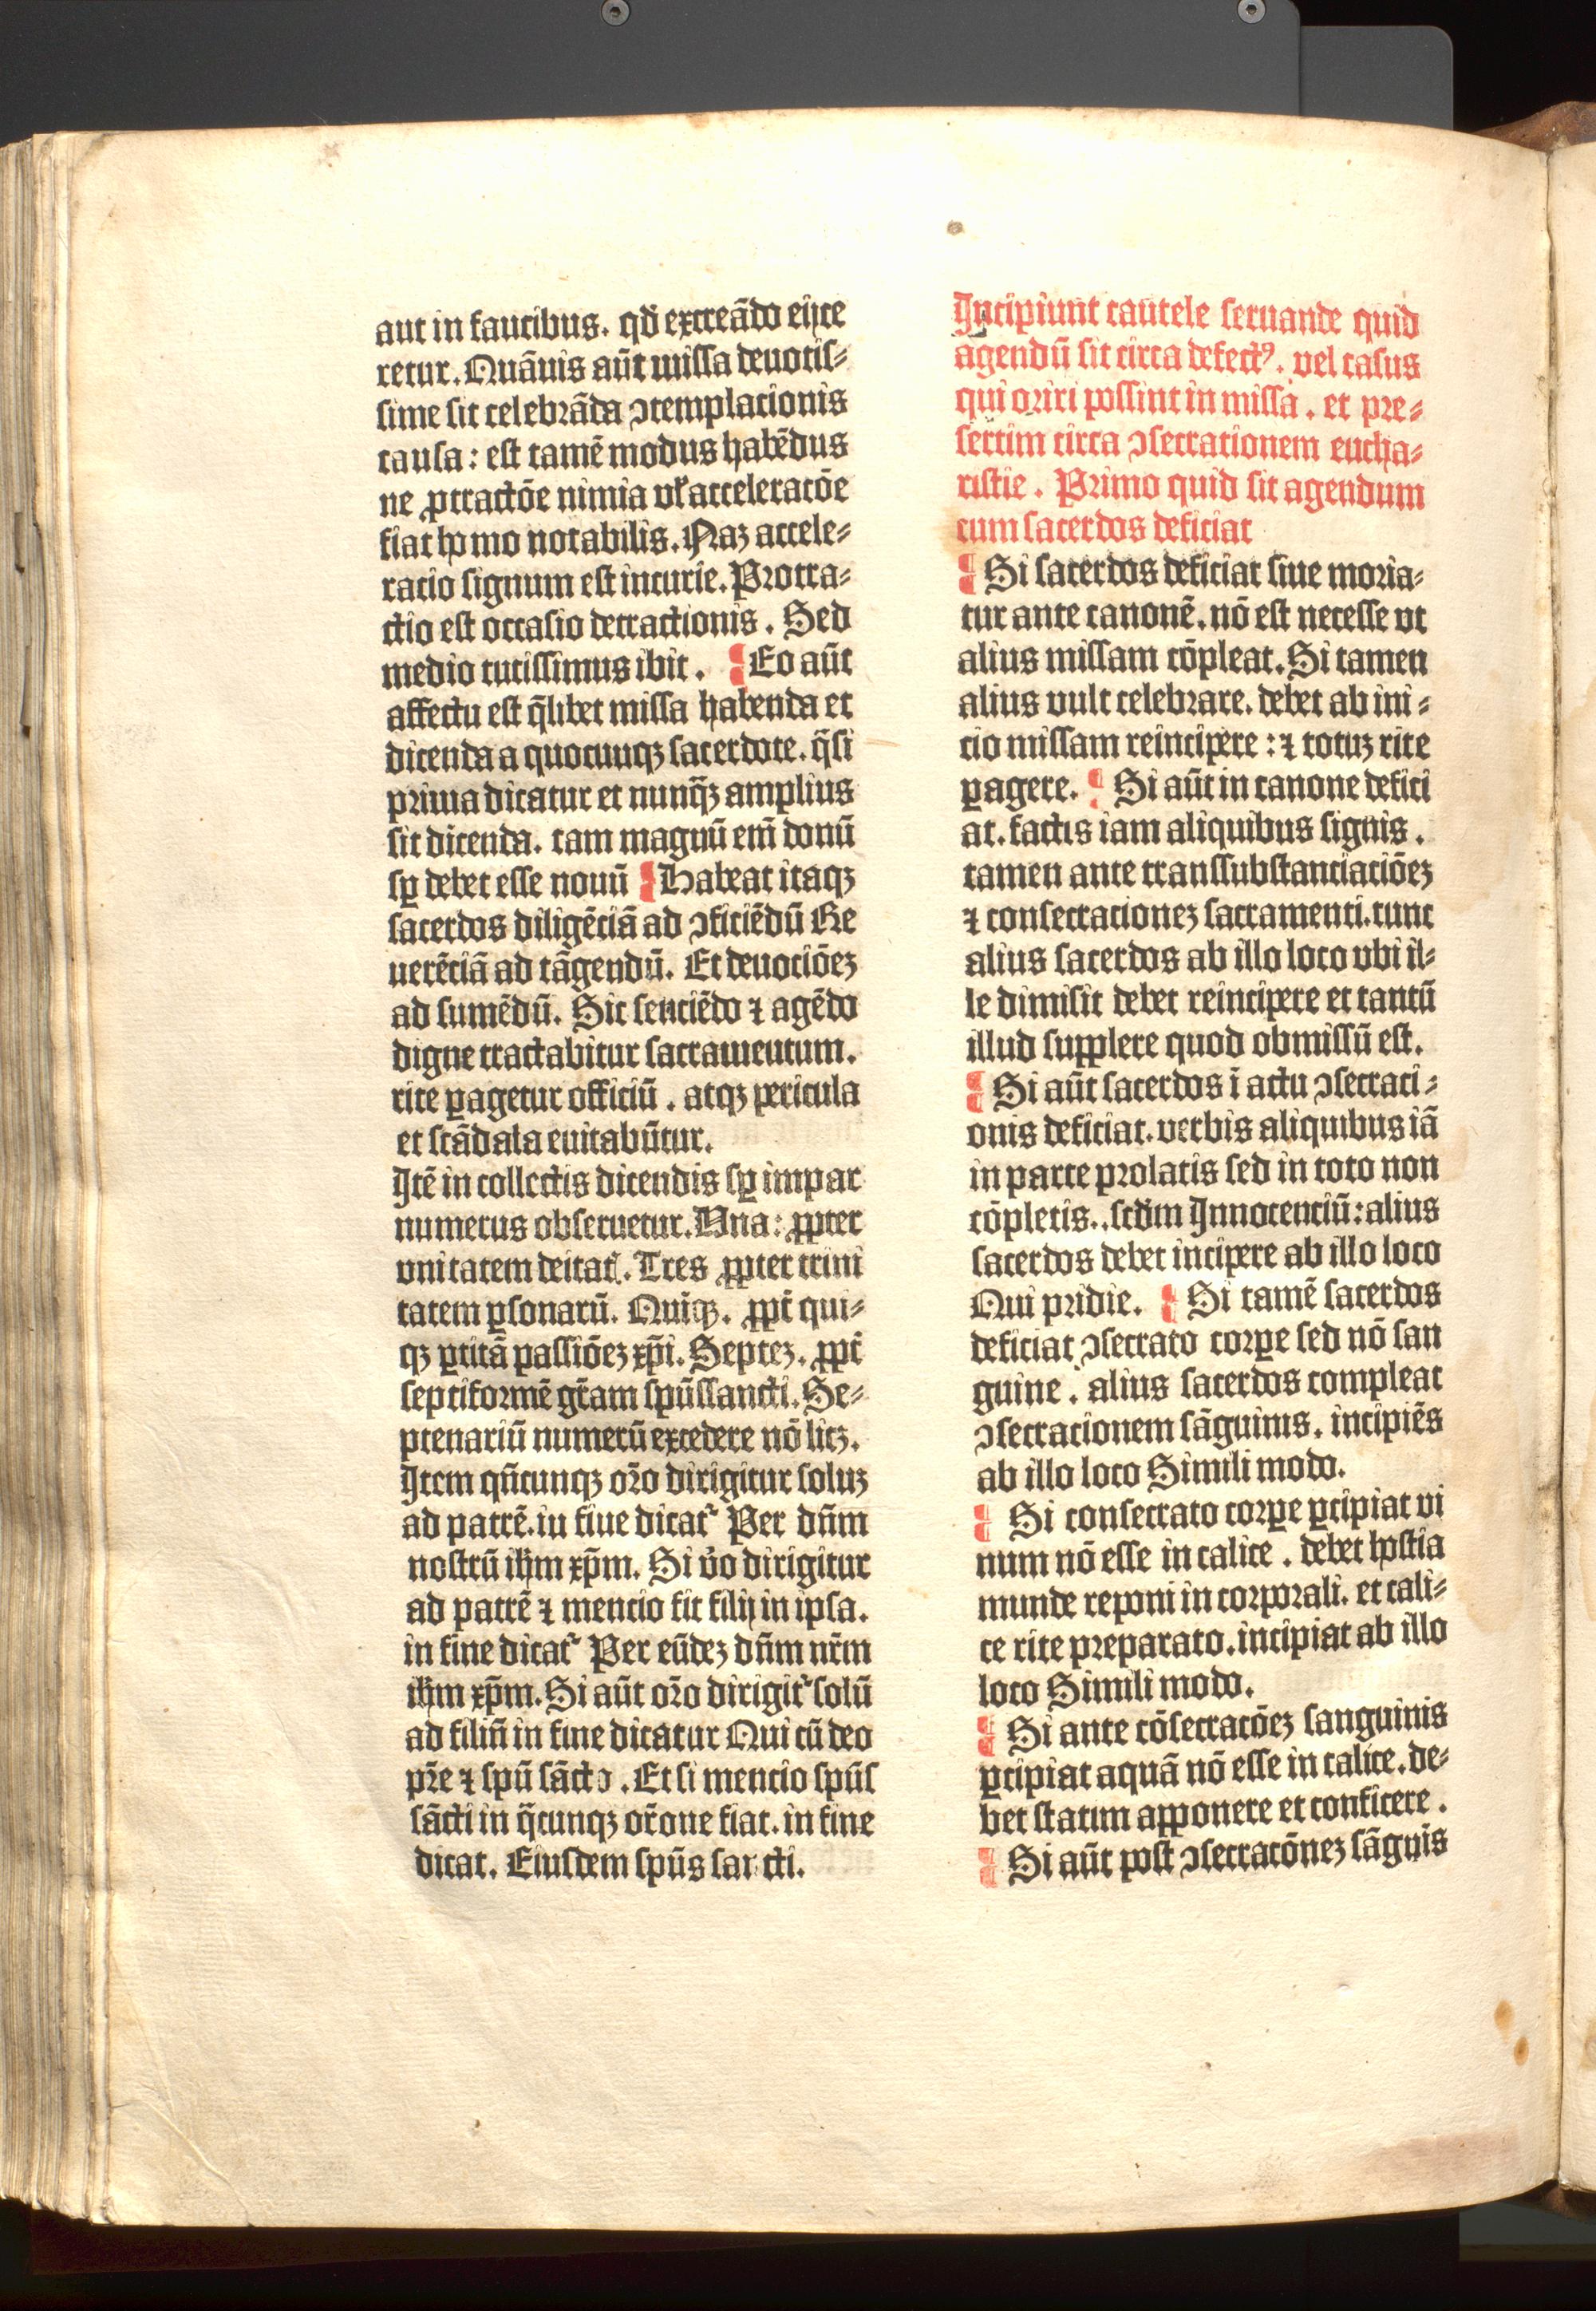 aut in faucibus. qđ excreādo eijce
retur. Quāuis aūt missa deuotis⸗
sime sit celebrāda ↄtemplacionis
causa: est tamē modus habēdus
ne ꝓtractōe nimia vł acceleracōe
fiat homo notabilis. Naꝫ accele⸗
racio signum est incurie. Protra⸗
ctio est occasio detractionis. Sed
medio tutissimus ibit. ¶ Eo aūt
affectu est q̄libet missa habenda et
dicenda a quocunqꝫ sacerdote. q̄si
prima dicatur et nunq̄ꝫ amplius
sit dicenda. tam magnū em̄ donū
sꝑ debet esse nouū ¶ Habeat itaqꝫ
sacerdos diligēciā ad ↄficiēdū Re
uerēciā ad tāgendū. Et deuociōeꝫ
ad sumēdū. Sic senciēdo ⁊ agēdo
digne tractabitur sacramentum.
rite ꝑagetur officiū. atqꝫ pericula
et scādala euitabūtur.
Itē in collectis dicendis sꝑ impar
numerus obseruetur. Una: ꝓpter
vnitatem deitatꝭ. Tres ꝓpter trini
tatem ꝑsonarū. Quiqꝫ. ꝓpt̄ qui⸗
qꝫ ꝑtitā passiōeꝫ xp̄i. Septeꝫ. ꝓpt̄
septiformē gr̄am spūssancti. Se⸗
ptenariū numerū excedere nō licꝫ.
Item qn̄cunqꝫ or̄o dirigitur soluꝫ
ad patrē. in fine dicat᷑ Per dn̄m
nostrū ihm̄ xp̄m. Si v̄o dirigitur
ad patrē ⁊ mencio fit filij in ipsa.
in fine dicat᷑ Per eūdeꝫ dn̄m nr̄m
ihm̄ xp̄m. Si aūt or̄o dirigit᷑ solū
ad filiū in fine dicatur Qui cū deo
pr̄e ⁊ spū sācto. Et si mencio spūs
sācti in q̄cunqꝫ or̄one fiat. in fine
dicat. Eiusdem spūs sancti.
Incipiunt cautele seruande quid
agendū sit circa defectꝰ. vel casus
qui oriri possint in missa. et pre⸗
sertim circa ↄsecrationem eucha⸗
ristie. Primo quid sit agendum
cum sacerdos deficiat
¶ Si sacerdos deficiat siue moria⸗
tur ante canonē. nō est necesse vt
alius missam cōpleat. Si tamen
alius vult celebrare. debet ab ini⸗
cio missam reincipere: ⁊ totuꝫ rite
ꝑagere. ¶ Si aūt in canone defici
at. factis iam aliquibus signis.
tamen ante transsubstanciaciōeꝫ
⁊ consecracioneꝫ sacramenti. tunc
alius sacerdos ab illo loco vbi il⸗
le dimisit debet reincipere et tantū
illud supplere quod obmissū est.
¶ Si aūt sacerdos ī actu ↄsecraci⸗
onis deficiat. verbis aliquibus iā
in parte prolatis sed in toto non
cōpletis. scd̄m Innocenciū: alius
sacerdos debet incipere ab illo loco
Qui pridie. ¶ Si tamē sacerdos
deficiat ↄsecrato corꝑe sed nō san
guine. alius sacerdos compleat
ↄsecracionem sāguinis. incipiēs
ab illo loco Simili modo.
¶ Si consecrato corꝑe ꝑcipiat vi
num nō esse in calice. debet hostia
munde reponi in corporali. et cali⸗
ce rite preparato. incipiat ab illo
loco Simili modo.
¶ Si ante cōsecracōeꝫ sanguinis
ꝑcipiat aquā nō esse in calice. de⸗
bet statim apponere et conficere.
¶ Si aūt post ↄsecracōneꝫ sāguīs